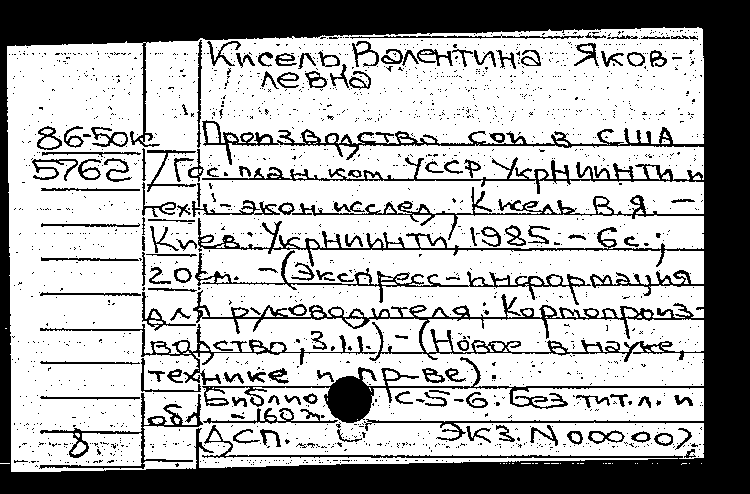 Кисель, Валентина Яков-
левна
86-50к Производство сои в США
5762 /Гос. план. ком. УССР, УкрНИИНТИ и
техн.-экон. исслед.; Кисель В.Я. –
Киев: УкрНИИНТИ, 1985. – 6 с.;
20 см. – (Экспресс-информация
для руководителя; Кормопроиз-
водство; 3.1.1). – (Новое в науке,
технике и пр-ве):
с. 5-6. Без тит. л. и
обл. – 160
8. ДСП. ЭКЗ. N 00000